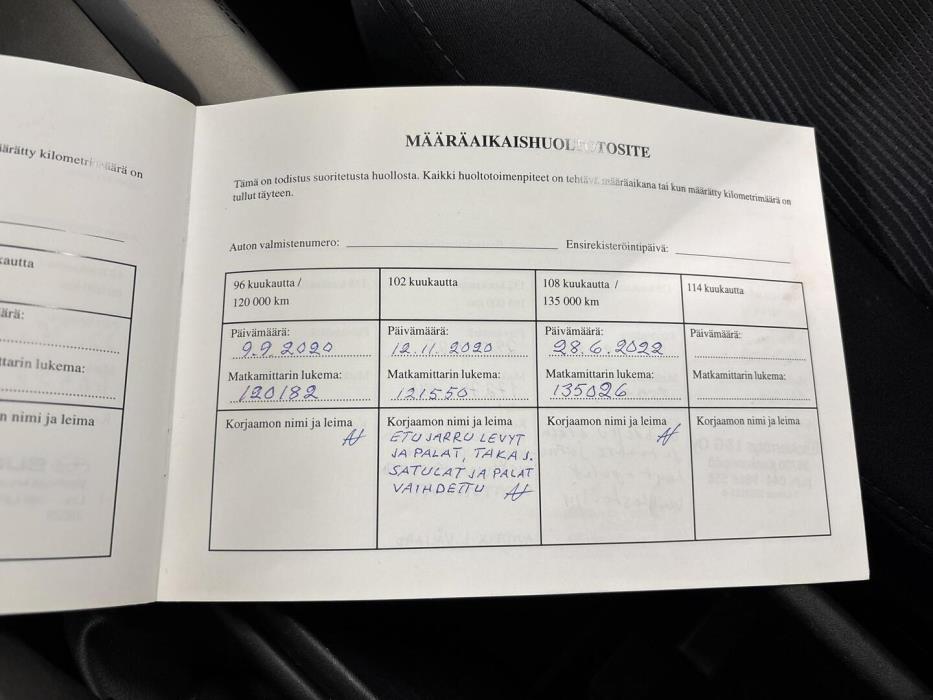 määrätty kilometrimäärä on
kautta
ärä:
ttarin lukema:
n nimi ja leima
MÄÄRÄAIKAISHUOLTOTOSITE
Tämä on todistus suoritetusta huollosta. Kaikki huoltotoimenpiteet on tehtävä määräaikana tai kun määrätty kilometrimäärä on
tullut täyteen.
Auton valmistenumero: Ensirekisteröintipäivä:
96 kuukautta /
120 000 km
Päivämäärä:
9.9.2020
Matkamittarin lukema:
120182
Korjaamon nimi ja leima
102 kuukautta
Päivämäärä:
12.11.2020
Matkamittarin lukema:
121550
Korjaamon nimi ja leima
ETUJARRU LEVYT
JA PALAT, TAKA J.
SATULAT JA PALAT
VAIHDETTU
108 kuukautta /
135 000 km
Päivämäärä:
28.6.2022
Matkamittarin lukema:
135026
Korjaamon nimi ja leima
114 kuukautta
Päivämäärä:
Matkamittarin lukema:
Korjaamon nimi ja leima